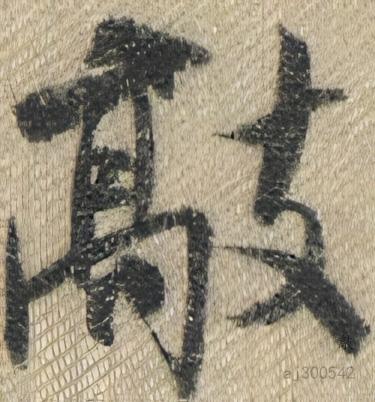 敲
aj300542